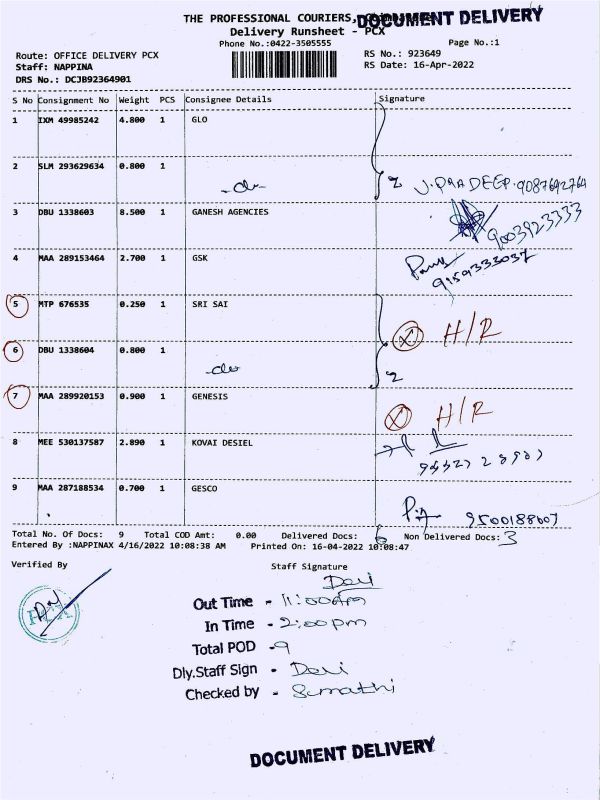 THE PROFESSIONAL COURIERS,
DOCUMENT DELIVERY
Delivery Runsheet - PCX
Phone No.:0422-3505555
Page No.:1
Route: OFFICE DELIVERY PCX
RS No.: 923649
Staff: NAPPINA
RS Date: 16-Apr-2022
DRS No.: DCJB92364901
S No Consignment No Weight PCS Consignee Details Signature
1 IXM 49985242 4.800 1 GLO
2 SLM 293629634 0.800 1
-do- 2 J.PRADEEP.9087642764
3 DBU 1338603 8.500 1 GANESH AGENCIES
9003923333
4 MAA 289153464 2.700 1 GSK
9159333037
5 MTP 676535 0.250 1 SRI SAI
X H/R
6 DBU 1338604 0.800 1
-do- 2
7 MAA 289920153 0.900 1 GENESIS
X H/R
8 MEE 530137587 2.890 1 KOVAI DESIEL
9 MAA 287188534 0.700 1 GESCO
9500188007
Total No. Of Docs: 9 Total COD Amt: 0.00 Delivered Docs: 6 Non Delivered Docs: 3
Entered By :NAPPINAX 4/16/2022 10:08:38 AM Printed On: 16-04-2022 10:08:47
Verified By Staff Signature
Devi
PCX
Out Time - 11:00am
In Time - 2:00pm
Total POD - 9
Dly.Staff Sign - Devi
Checked by - Sumathi
DOCUMENT DELIVERY